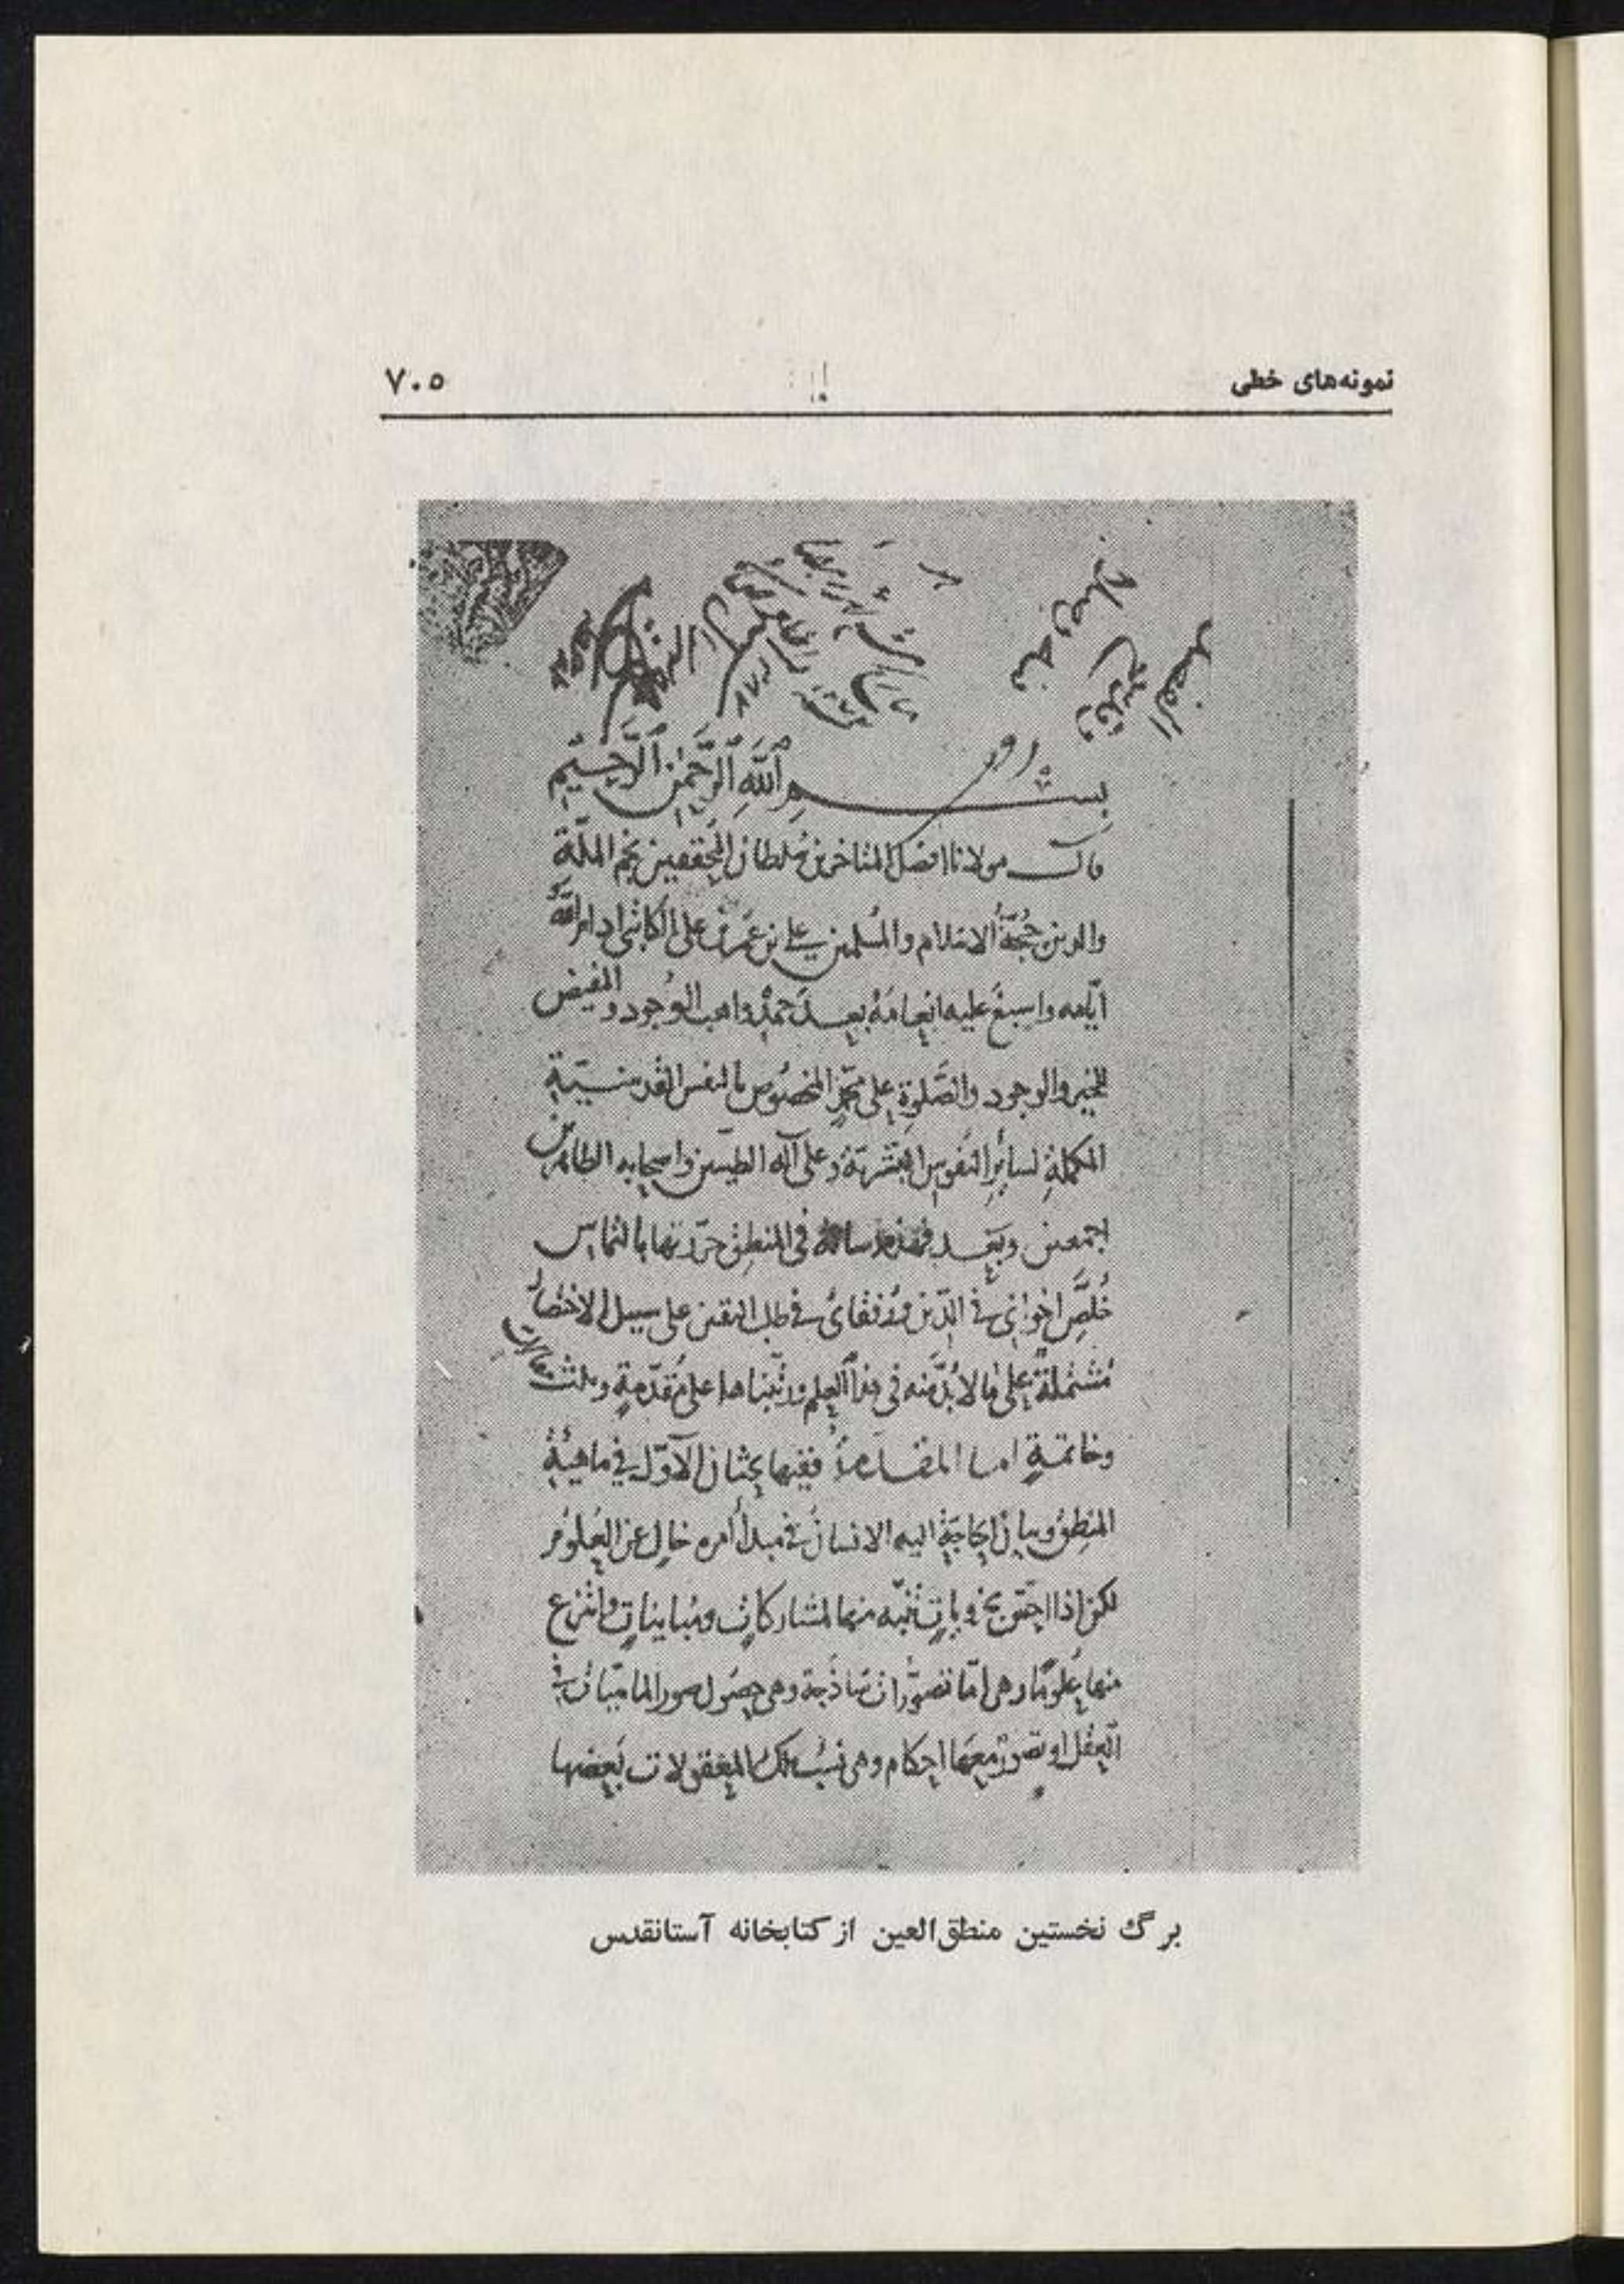 نمونه‌های خطی
۷۰۵
بسم الله الرحمن الرحیم
قال مولانا افضل المتاخرین سلطان المحققین نجم الملة
والدین حجة الاسلام والمسلمین علی بن عمر بن علی الکاتبی ادام الله
ایامه واسبغ علیه انعامه بعد حمد واهب الوجود والمفیض
للخیر والوجود والصلوة علی محمد المخصوص بالنفس القدسیة
المکملة لسایر النفوس البشریة وعلی آله الطیبین واصحابه الطاهرین
اجمعین وبعد فهذه رسالة فی المنطق حررتها بالتماس
خلص اخوانی فی الدین ورفقای فی طلب الیقین علی سبیل الاختصار
مشتملة علی ما لا بد منه فی هذا العلم ورتبناها علی مقدمة وثلث مقالات
وخاتمة اما المقدمة ففیها بحثان الاول فی ماهیة
المنطق وبیان الحاجة الیه الانسان فی مبدأ امره خال عن العلوم
لکن اذا احس بجزویات تنبه منها لمشارکات ومباینات وانتزع
منها علوما وهی اما تصورات ساذجة وهی حصول صور الماهیات فی
العقل او تصور معها احکام وهی نسب تلک المعقولات بعضها
برگ نخستین منطق‌العین از کتابخانه آستانقدس